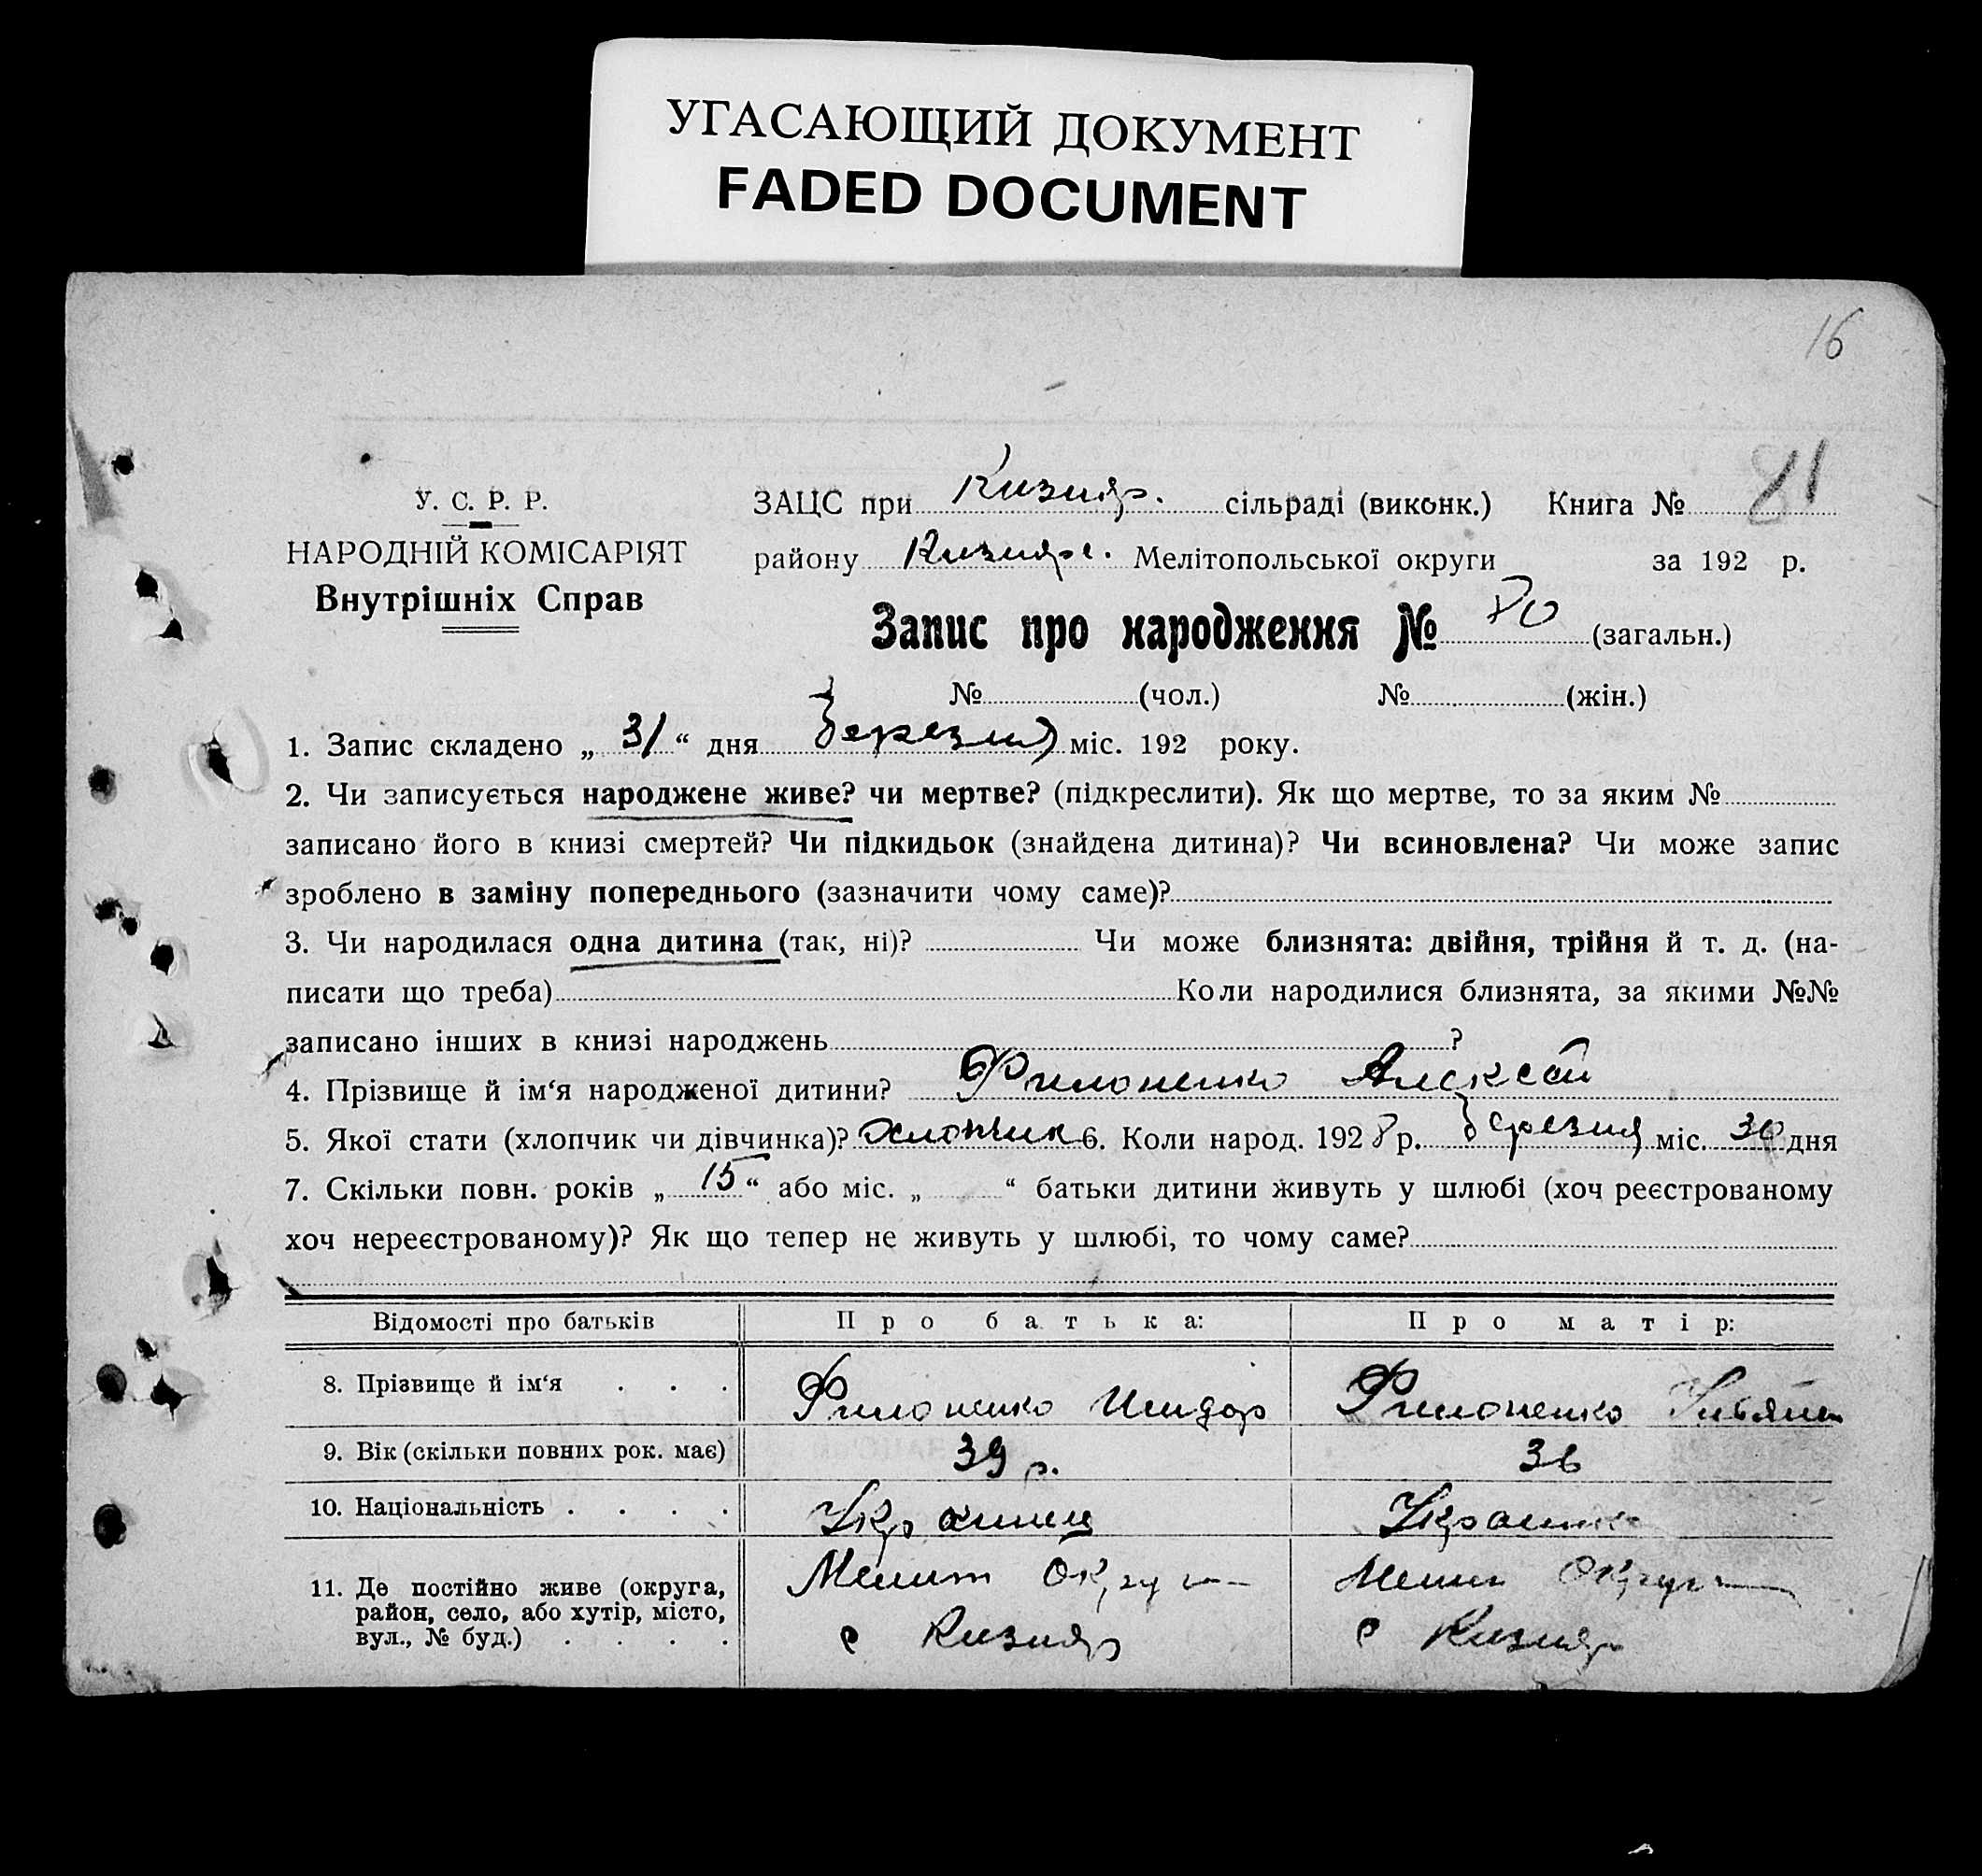 УГАСАЮЩИЙ ДОКУМЕНТ
FADED DOCUMENT
16
У. С. Р. Р.
НАРОДНІЙ КОМІСАРІЯТ
Внутрішніх Справ
ЗАЦС при Кизияр. сільраді (виконк.) Книга №
району Кизияре. Мелітопольської округи за 192 р.
Запис про народження № 80 (загальн.)
№ (чол.) № (жін.)
1. Запис складено „ 31 “ дня березня міс. 192 року.
2. Чи записується народжене живе? чи мертве? (підкреслити). Як що мертве, то за яким №
записано його в книзі смертей? Чи підкидьок (знайдена дитина)? Чи всиновлена? Чи може запис
зроблено в заміну попереднього (зазначити чому саме)?
3. Чи народилася одна дитина (так, ні)? Чи може близнята: двійня, трійня й т. д. (на-
писати що треба) Коли народилися близнята, за якими №№
записано інших в книзі народжень ?
4. Прізвище й ім‘я народженої дитини? Филоненко Алексей
5. Якої стати (хлопчик чи дівчинка)? Хлопчик 6. Коли народ. 1928 р. березня міс. 30 дня
7. Скільки повн. років „ 15 “ або міс. „ “ батьки дитини живуть у шлюбі (хоч реєстрованому
хоч нереєстрованому)? Як що тепер не живуть у шлюбі, то чому саме?
Відомості про батьків Про батька: Про матір:
8. Прізвище й ім‘я . . . Филоненко Исидор Филоненко
9. Вік (скільки повних рок. має) 39 р. 36
10. Національність . . . . Украинец Украинка
11. Де постійно живе (округа,
район, село, або хутір, місто,
вул., № буд.) . . . .
Мелит Округи Мелит Округи
с Кизияр с Кизияр